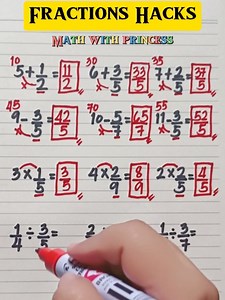 FRACTIONS HACKS
MATH WITH PRINCESS
10 30 35
5+1/2=11/2 6+3/5=33/5 7+2/5=37/5
45 70 55
9-3/5=42/5 10-5/7=65/7 11-3/5=52/5
3×1/5=3/5 4×2/9=8/9 2×2/5=4/5
1/4÷3/5= 2/ ÷3/7=